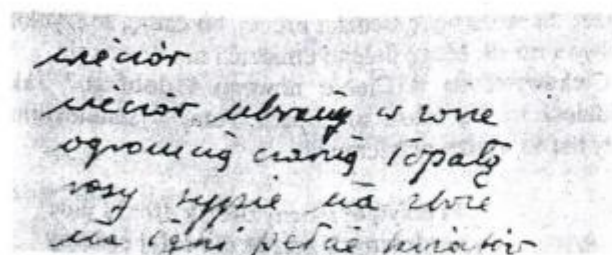 wieczór
wieczór ubrany w zorze
ogromną czarną łopatą
rosy sypie na zboże
na łąki pełne kwiatów